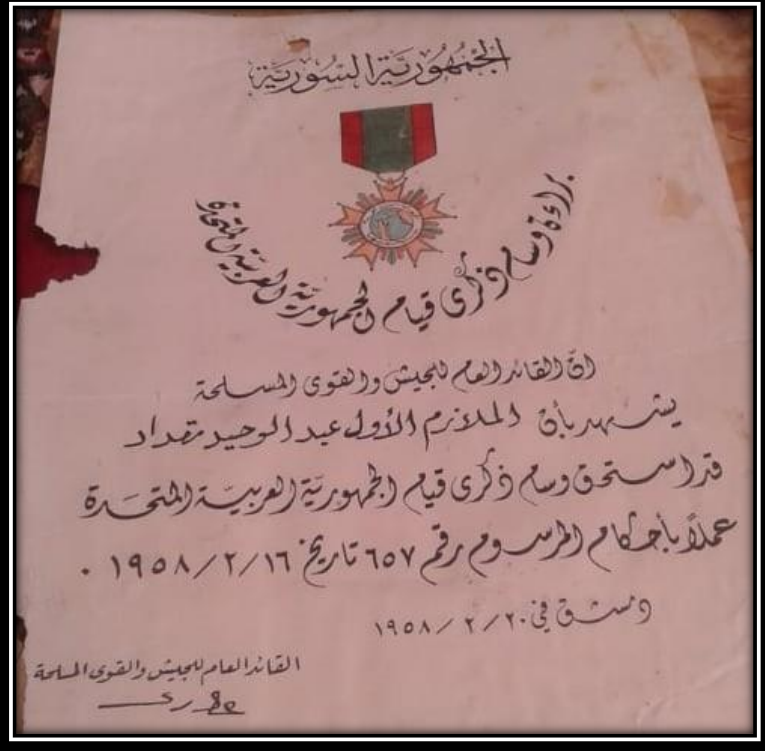 الجمهورية السورية
براءة وسام ذكرى قيام الجمهورية العربية المتحدة
ان القائد العام للجيش والقوى المسلحة
يشهد بأن الملازم الأول عبد الوحيد مقداد
قد استحق وسام ذكرى قيام الجمهورية العربية المتحدة
عملاً بأحكام المرسوم رقم ٦٥٧ تاريخ ١٦/٢/١٩٥٨ .
دمشق في ٢٠/٢/١٩٥٨
القائد العام للجيش والقوى المسلحة